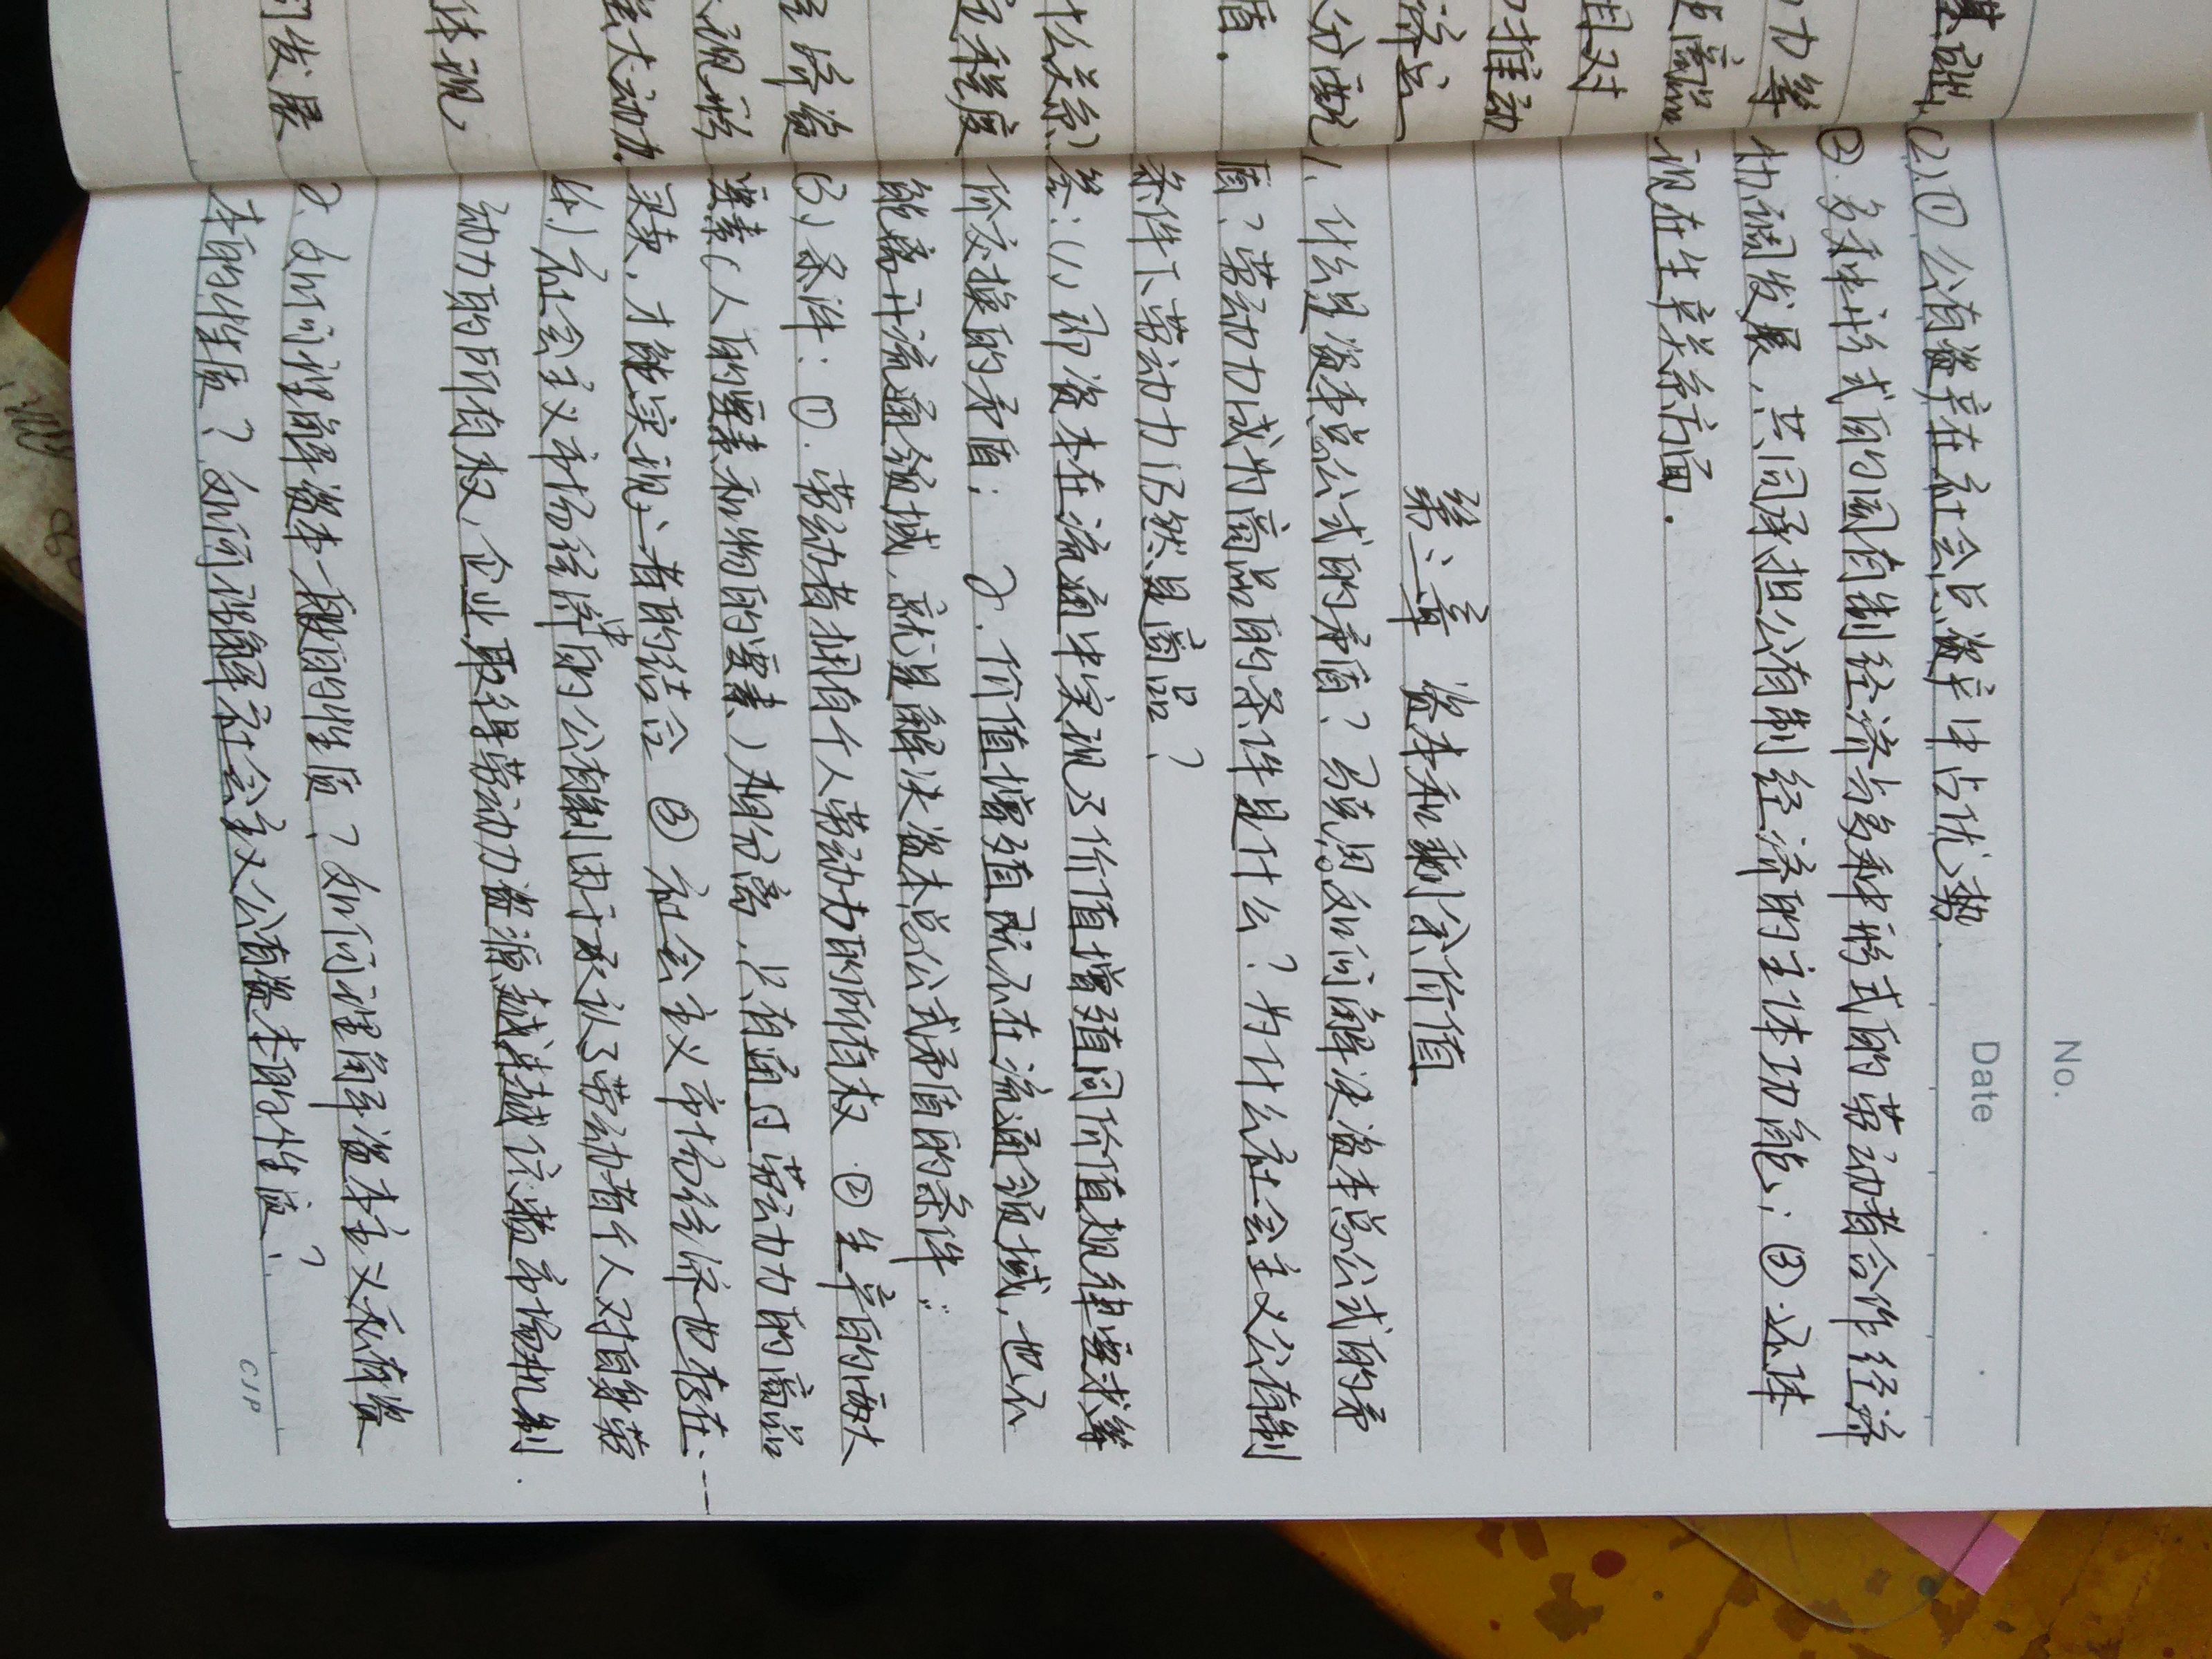 No.
Date
(2).① 公有资产在社会总资产中占优势.
②.多种形式的公有制经济与多种形式的劳动者合作经济
协调发展,共同承担公有制经济的主体功能;③.还体
现在生产关系方面.
第三章 资本和剩余价值
1、什么是资本总公式的矛盾?马克思如何解决资本总公式的矛
盾?劳动力成为商品的条件是什么?为什么社会主义公有制
条件下劳动力仍然是商品?
答:(1)即资本在流通中实现了价值增殖同价值规律要求等
价交换的矛盾; 2.价值增殖既不在流通领域,也不
能离开流通领域,就是解决资本总公式矛盾的条件;
(3)条件:①.劳动者拥有个人劳动力的所有权.②生产的两大
要素(人的要素和物的要素)相分离,只有通过劳动力的商品
买卖,才能实现二者的结合 ③社会主义市场经济也存在…
(4)社会主义市场经济的公有制由于承认了劳动者个人对自身劳
动力的所有权,企业取得劳动力资源越来越依赖市场机制.
2.如何理解资本一般的性质?如何理解资本主义私有资
本的性质?如何理解社会主义公有资本的性质?
CJP
基础,
力等
商品
且对
推动
济运
分配
盾.
什么关系)
程度
经济资
现形
强大动力.
体现、
发展